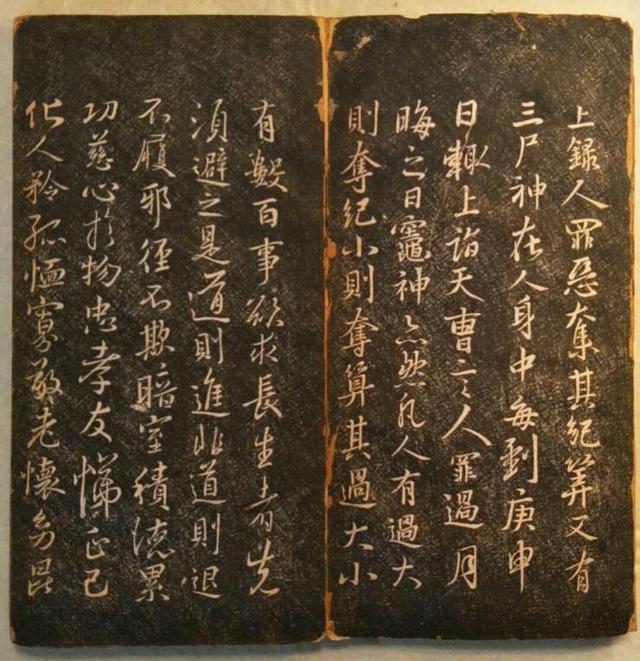 上録人罪惡奪其紀筭又有
三尸神在人身中每到庚申
日輙上詣天曹言人罪過月
晦之日竈神亦然凡人有過大
則奪紀小則奪算其過大小
有數百事欲求長生者先
須避之是道則進非道則退
不履邪徑不欺暗室積德累
功慈心於物忠孝友悌正己
化人矜孤恤寡敬老懷幼昆